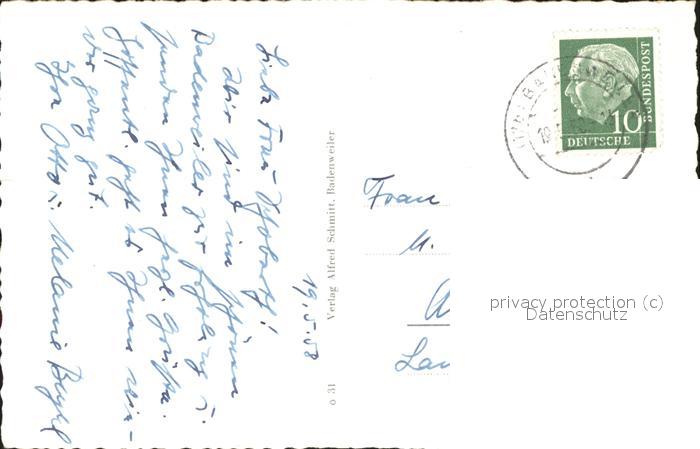 19.5.58
Liebe Frau
Wir sind im schönen
Badenweiler zur Erholung u.
senden Ihnen herzl. Grüße.
Hoffentl. geht es Ihnen wie-
der ganz gut.
Ihre Otto u. Melanie
o 31
Verlag Alfred Schmitt, Badenweiler
Frau
M.
A
Lan
BUNDESPOST
10
DEUTSCHE
privacy protection (c)
Datenschutz